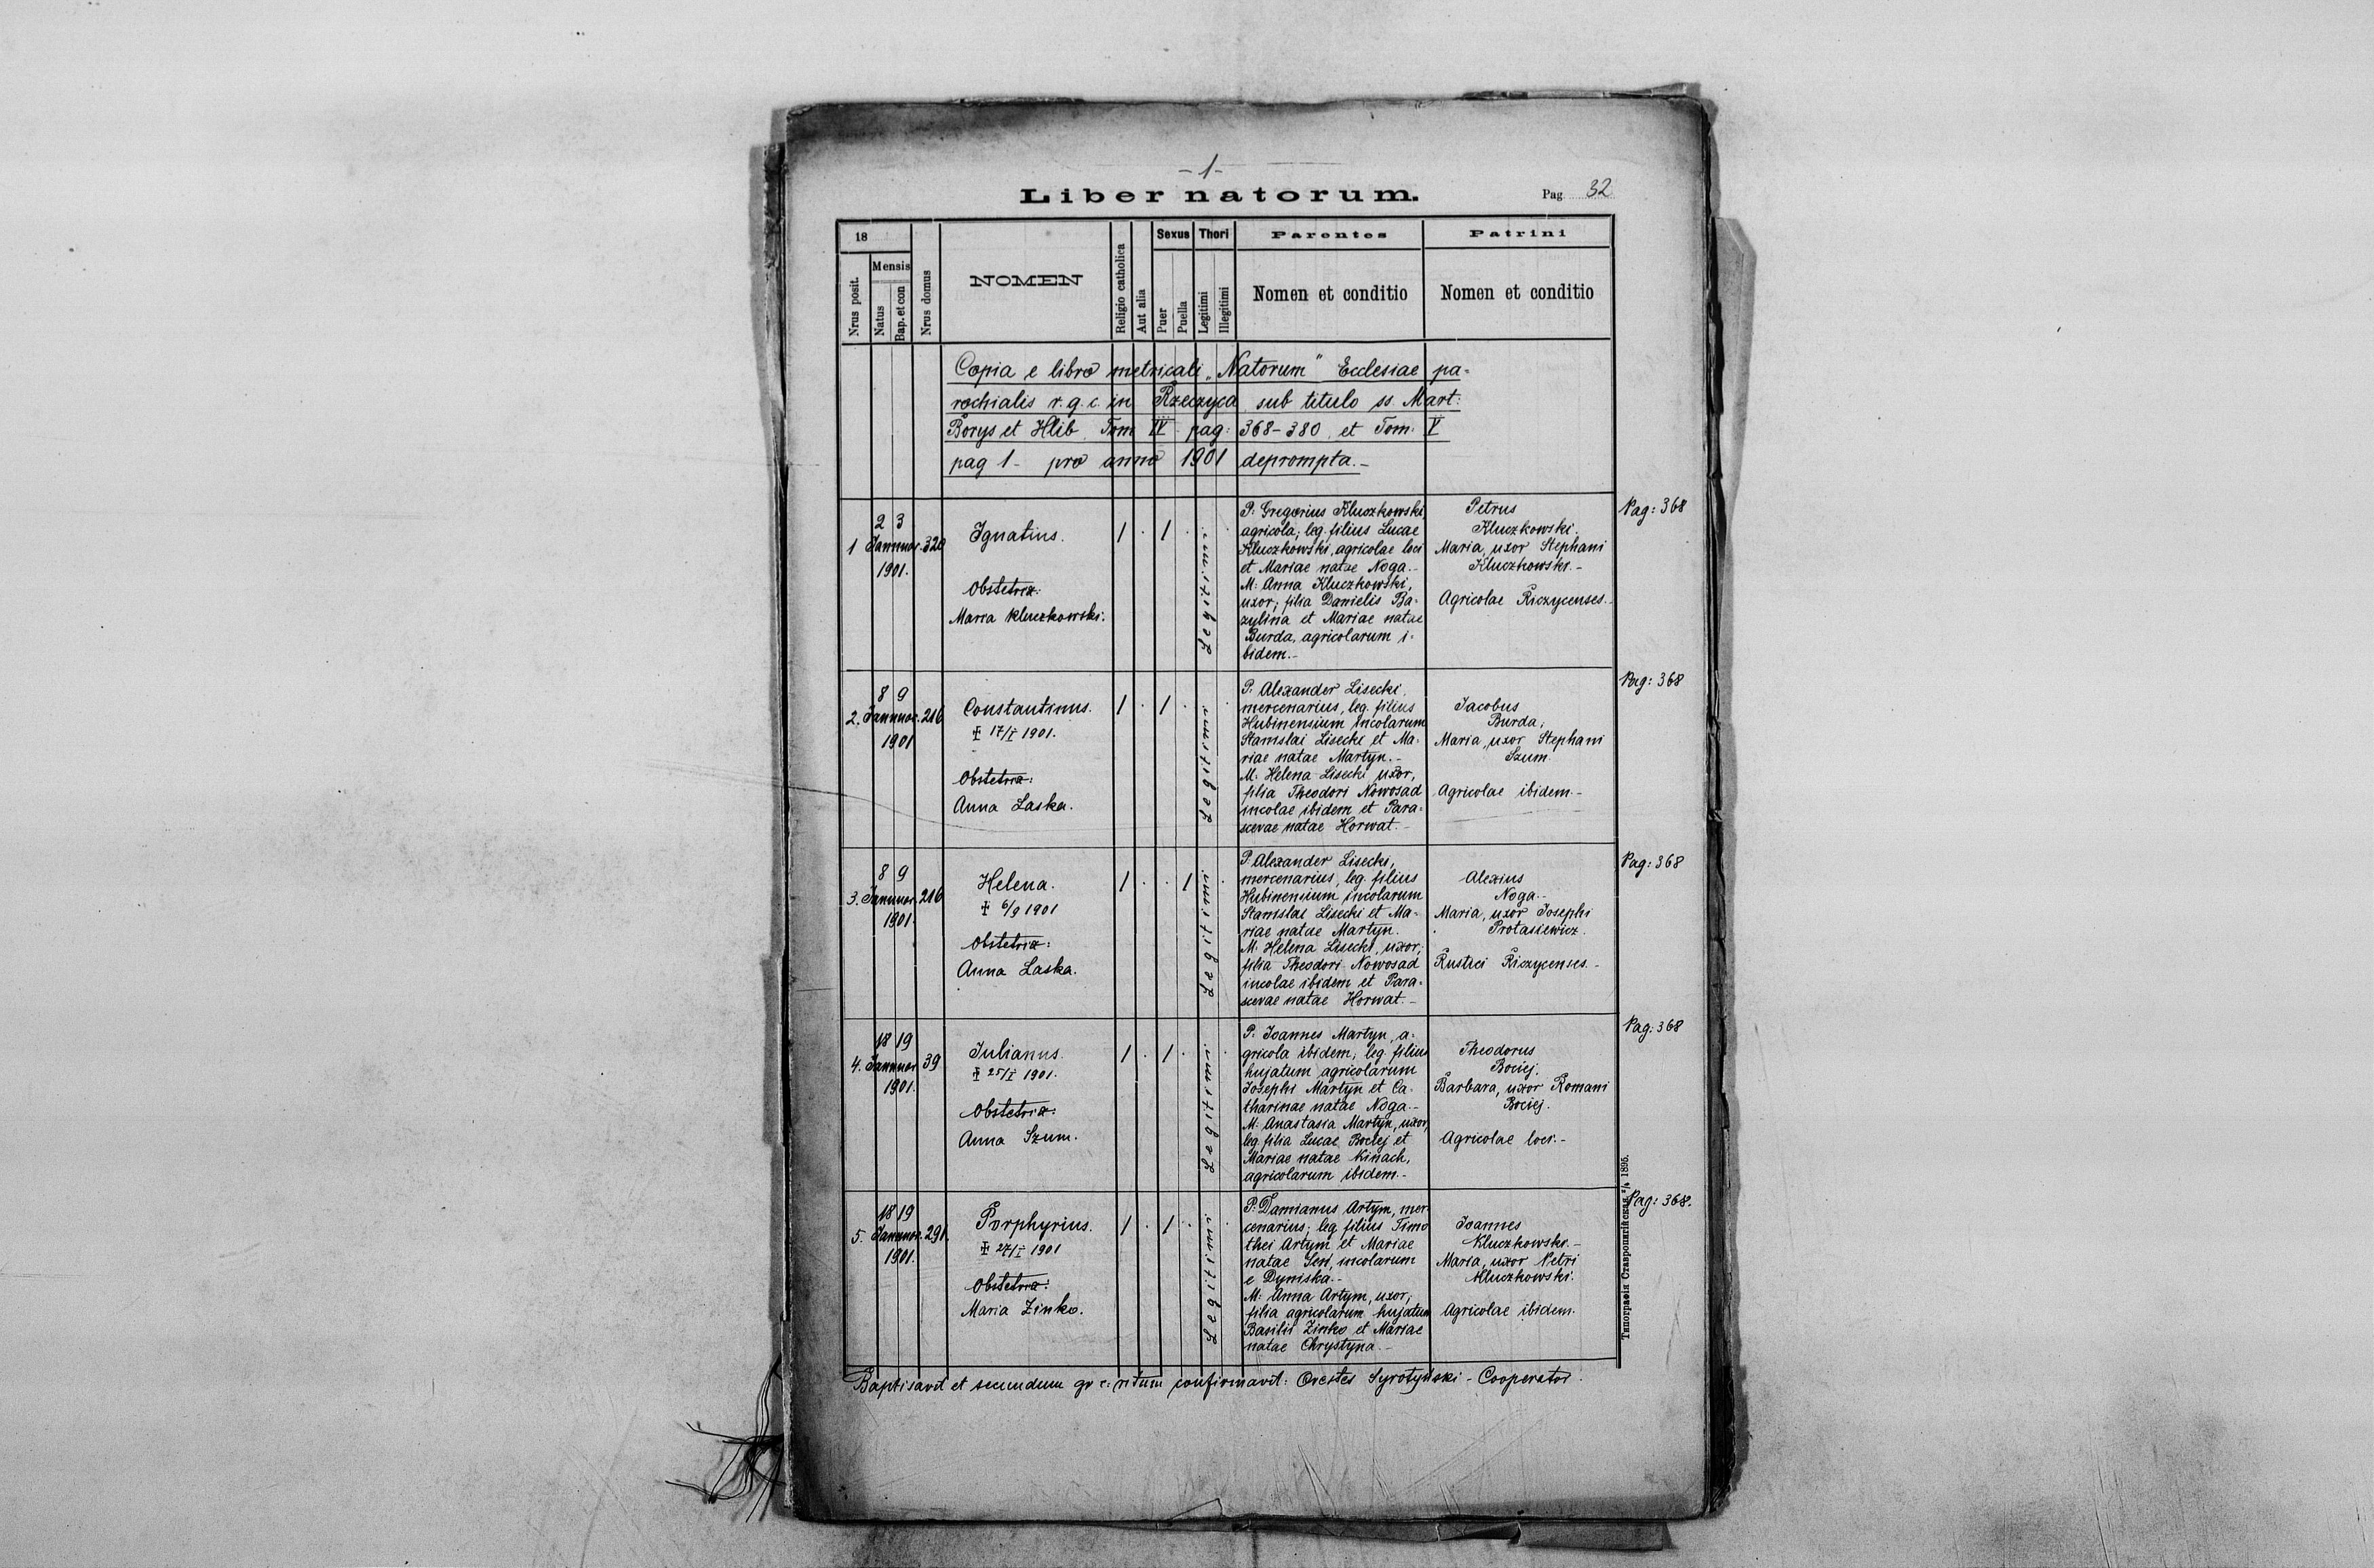 -1-
Liber natorum.
Pag 32
18
Mensis
Nrus posit.
Natus
Bap. et con
Nrus domus
NOMEN
Religio catholica
Aut alia
Sexus
Puer
Puella
Thori
Legitimi
Illegitimi
Parentes
Nomen et conditio
Patrini
Nomen et conditio
Copia e libro metricali „Natorum" Ecclesiae pa-
rochialis r. g. c. in Rzeczyca sub titulo ss. Mart:
Borys et Hlib. Tom IV pag: 368-380 et Tom: V
pag 1- pro anno 1901 deprompta.-
1
2 3
Januar.
1901.
320
Ignatius.
Obstetrix:
Maria Kluczkowski.
1 . 1 . .
Legitimi
P: Gregorius Kluczkowski,
agricola; leg. filius Lucae
Kluczkowski, agricolae loci
et Mariae natae Noga.-
M: Anna Kluczkowski,
uxor; filia Danielis Ba-
zylina et Mariae natae
Burda, agricolarum i-
bidem.-
Petrus
Kluczkowski.
Maria, uxor Stephani
Kluczkowski.-
Agricolae Riczycenses.
Pag: 368
2.
8 9
Januar.
1901
216
Constantinus.
✝ 17/I 1901.
Obstetrix:
Anna Laska.
1 . 1 . .
Legitimi
P: Alexander Lisecki,
mercenarius, leg. filius
Hubinensium incolarum
Stanislai Lisecki et Ma-
riae natae Martyn.-
M: Helena Lisecki uxor,
filia Theodori Nowosad
incolae ibidem et Para-
scevae natae Horwat.-
Jacobus
Burda;
Maria, uxor Stephani
Szum.
Agricolae ibidem.-
Pag: 368
3.
8 9
Januar.
1901.
216
Helena.
✝ 6/9 1901
Obstetrix:
Anna Laska.
1 . . 1 .
Legitimi
P: Alexander Lisecki,
mercenarius, leg. filius
Hubinensium incolarum
Stanislai Lisecki et Ma-
riae natae Martyn.
M: Helena Lisecki, uxor;
filia Theodori Nowosad
incolae ibidem et Para-
scevae natae Horwat.-
Alexius
Noga.-
Maria, uxor Josephi
Protasiewicz.
Rustici Riczycenses.-
Pag: 368
4.
18 19
Januar
1901.
39
Julianus.
✝ 25/I 1901.
Obstetrix:
Anna Szum.
1 . 1 . .
Legitimi
P: Joannes Martyn, a-
gricola ibidem; leg. filius
hujatum agricolarum
Josephi Martyn et Ca-
tharinae natae Noga.-
M: Anastasia Martyn, uxor,
leg. filia Lucae Bociej et
Mariae natae Kinach,
agricolarum ibidem.-
Theodorus
Bociej.
Barbara, uxor Romani
Bociej.
Agricolae loci.-
Pag: 368
5.
18 19
Januar.
1901.
291.
Porphyrius.
✝ 27/I 1901
Obstetrix:
Maria Zinko.
1 . 1 . .
Legitimi
P: Damianus Artym, mer-
cenarius; leg. filius Timo
thei Artym et Mariae
natae Sen, incolarum
e Dyniska.-
M: Anna Artym, uxor;
filia agricolarum hujatum
Basilii Zinko et Mariae
natae Chrystyna.-
Joannes
Kluczkowski.-
Maria, uxor Petri
Kluczkowski.
Agricolae ibidem.
Pag: 368.
Типографія Ставропигійская 1895.
Baptisavit et secundum gr c: ritum confirmavit: Orestes Syrotyński - Cooperator.